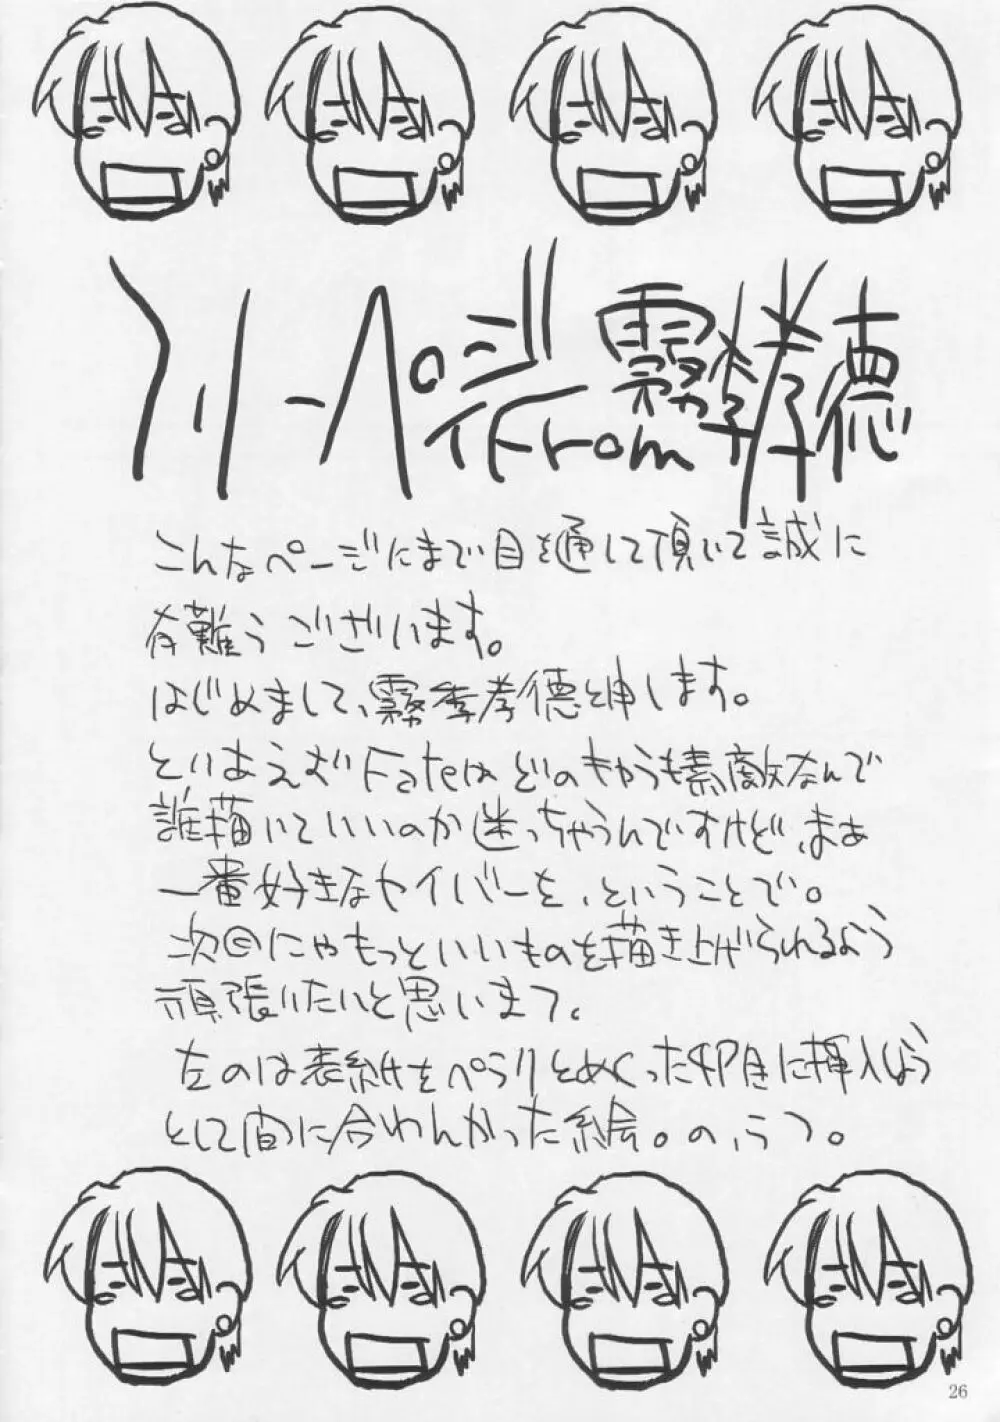 フリーページ From 霧季孝徳
こんなページにまで目を通して頂いて誠に
有難うございます。
はじめまして、霧季孝徳と申します。
とりあえずFateはどのキャラも素敵なんで
誰描いていいのか迷っちゃうんですけど、まぁ
一番好きなセイバーを、ということで。
次回にゃもっといいものを描き上げられるよう
頑張りたいと思いまフ。
左のは表紙をペラリとめくった時に挿入しよう
として間に合わんかった絵。の、うつ。
26